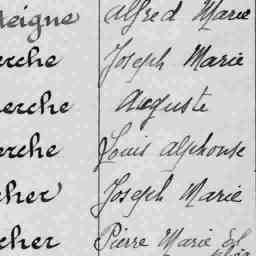 teigne Alfred Marie
erche Joseph Marie
herche Auguste
erche Louis alphonse
cher Joseph Marie
cher Pierre Marie